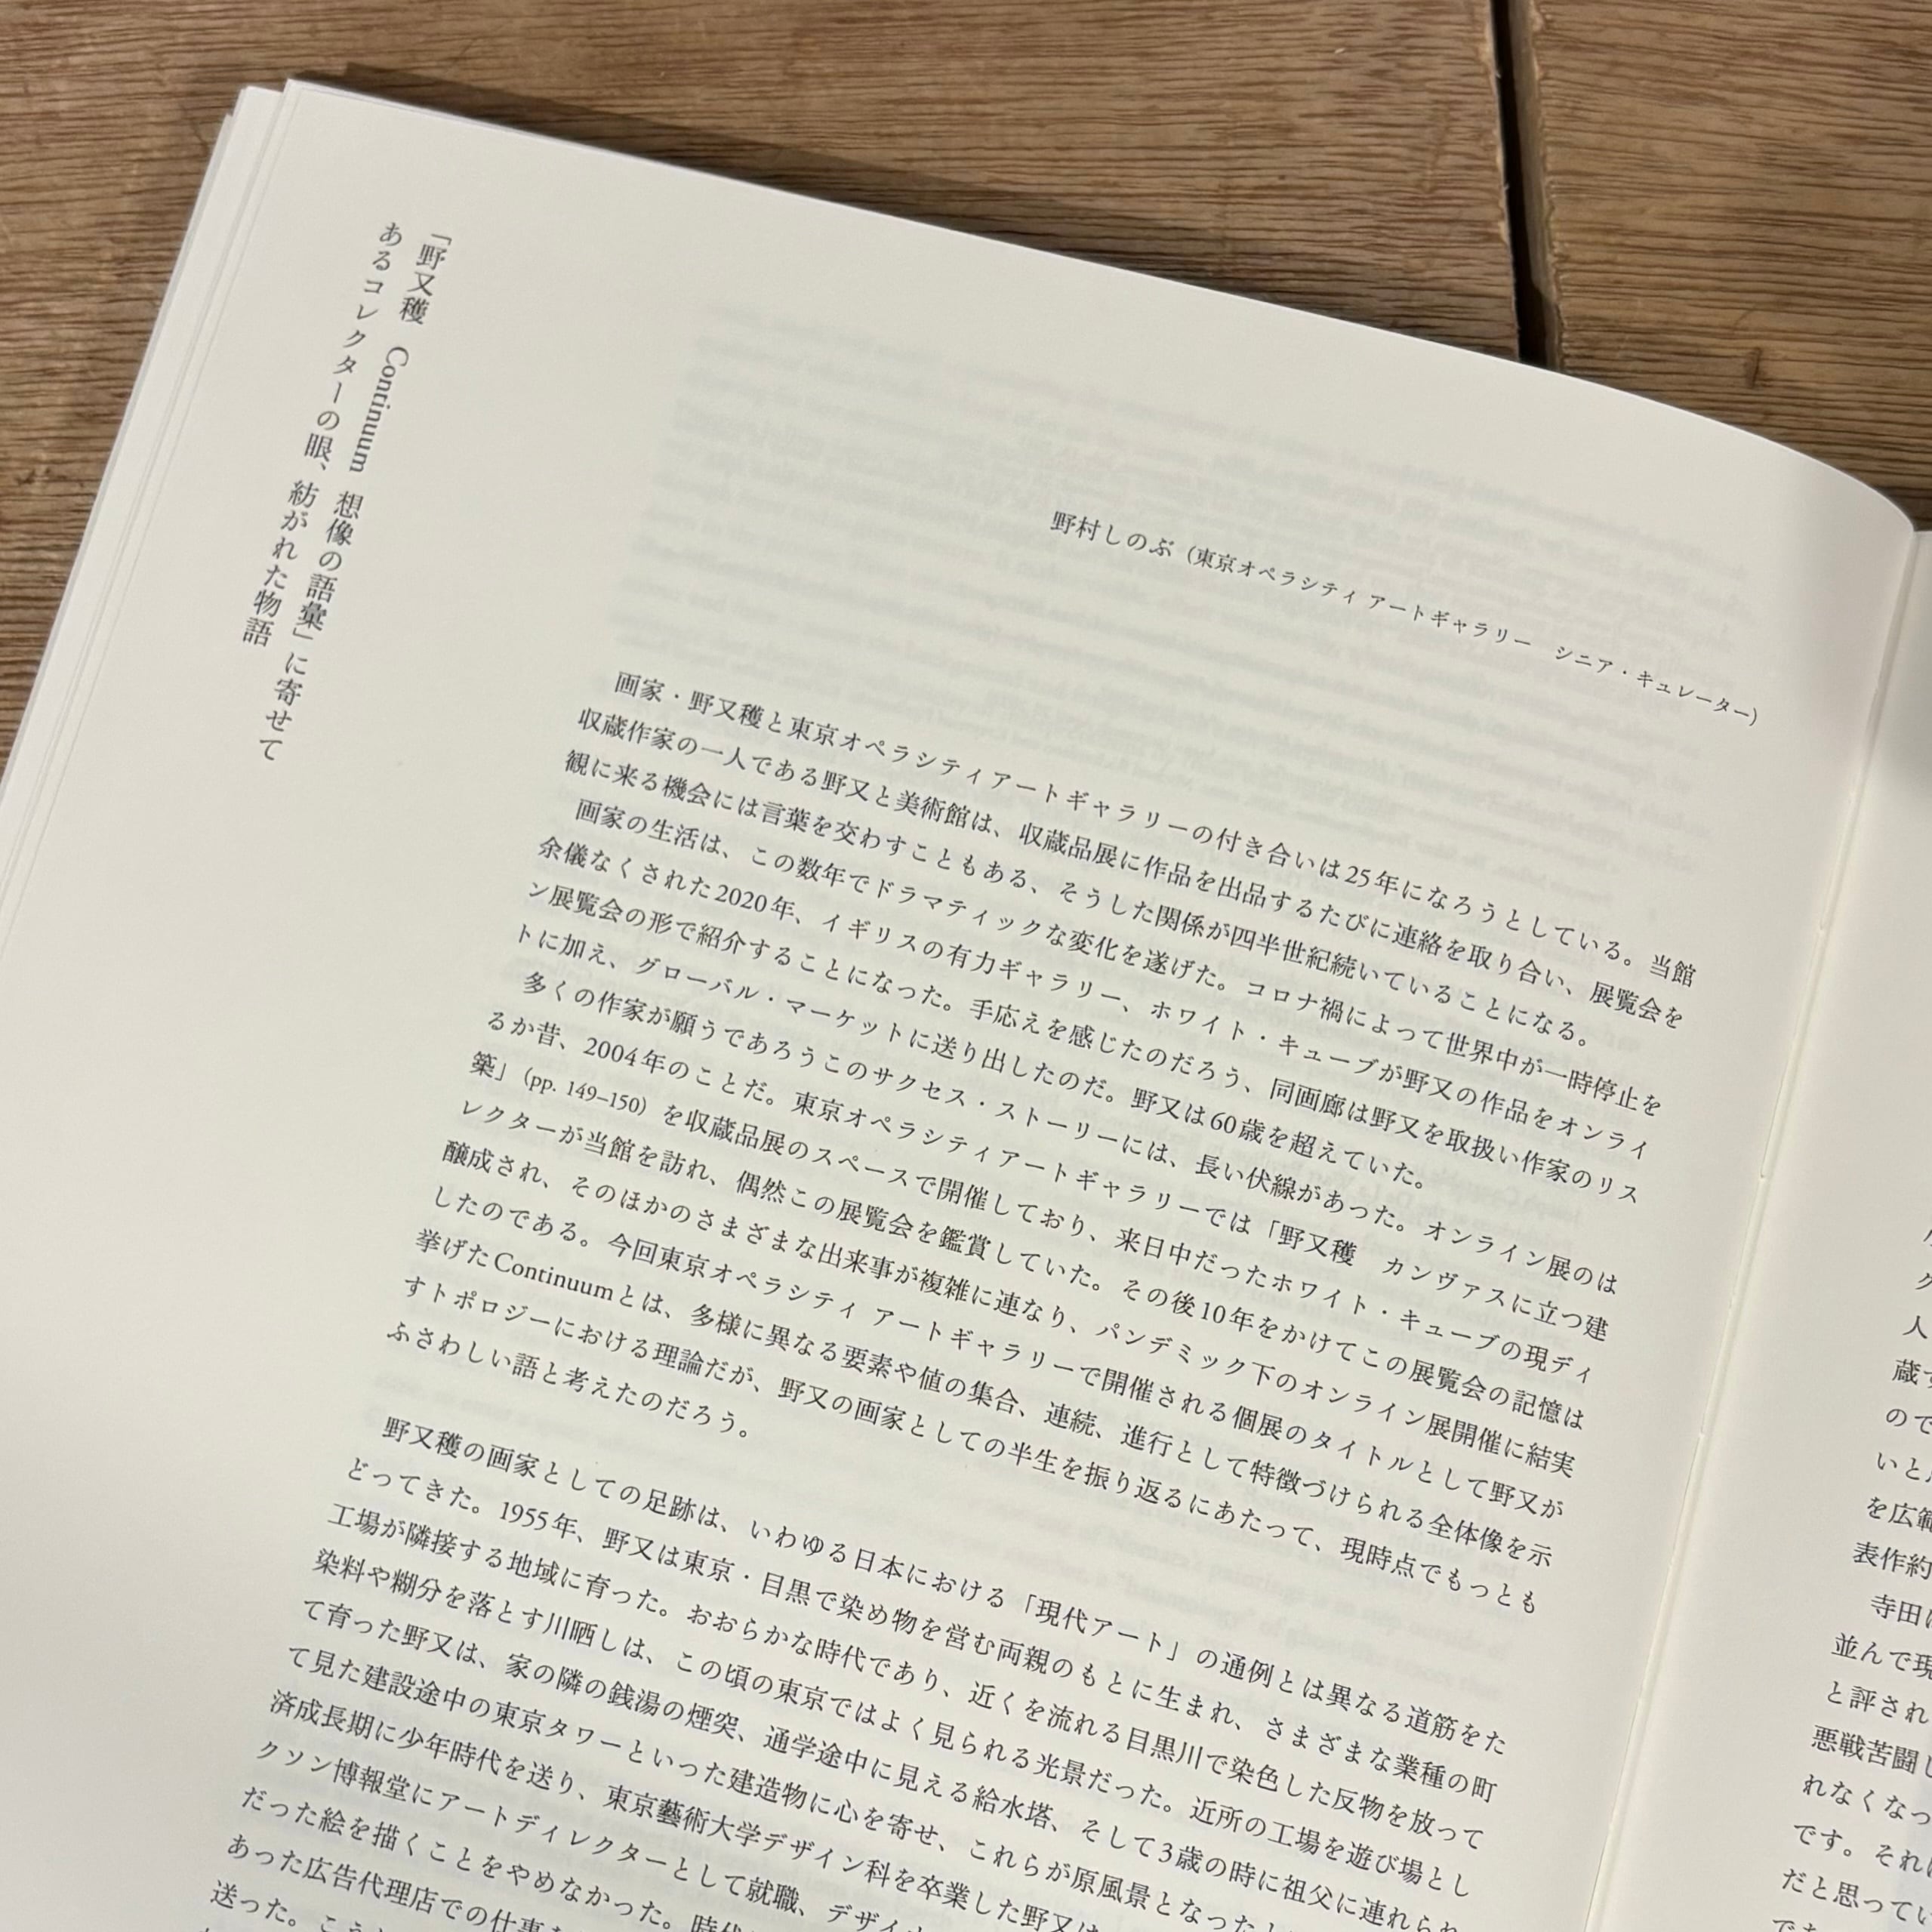 「野又穫　Continuum　想像の語彙」に寄せて
あるコレクターの眼、紡がれた物語
野村しのぶ（東京オペラシティ アートギャラリー　シニア・キュレーター）
画家・野又穫と東京オペラシティアートギャラリーの付き合いは25年になろうとしている。当館
収蔵作家の一人である野又と美術館は、収蔵品展に作品を出品するたびに連絡を取り合い、展覧会を
観に来る機会には言葉を交わすこともある、そうした関係が四半世紀続いていることになる。
画家の生活は、この数年でドラマティックな変化を遂げた。コロナ禍によって世界中が一時停止を
余儀なくされた2020年、イギリスの有力ギャラリー、ホワイト・キューブが野又の作品をオンライ
ン展覧会の形で紹介することになった。手応えを感じたのだろう、同画廊は野又を取扱い作家のリス
トに加え、グローバル・マーケットに送り出したのだ。野又は60歳を超えていた。
多くの作家が願うであろうこのサクセス・ストーリーには、長い伏線があった。オンライン展のは
るか昔、2004年のことだ。東京オペラシティアートギャラリーでは「野又穫　カンヴァスに立つ建
築」（pp. 149–150）を収蔵品展のスペースで開催しており、来日中だったホワイト・キューブの現ディ
レクターが当館を訪れ、偶然この展覧会を鑑賞していた。その後10年をかけてこの展覧会の記憶は
醸成され、そのほかのさまざまな出来事が複雑に連なり、パンデミック下のオンライン展開催に結実
したのである。今回東京オペラシティ アートギャラリーで開催される個展のタイトルとして野又が
挙げたContinuumとは、多様に異なる要素や値の集合、連続、進行として特徴づけられる全体像を示
すトポロジーにおける理論だが、野又の画家としての半生を振り返るにあたって、現時点でもっとも
ふさわしい語と考えたのだろう。
野又穫の画家としての足跡は、いわゆる日本における「現代アート」の通例とは異なる道筋をた
どってきた。1955年、野又は東京・目黒で染め物を営む両親のもとに生まれ、さまざまな業種の町
工場が隣接する地域に育った。おおらかな時代であり、近くを流れる目黒川で染色した反物を放って
染料や糊分を落とす川晒しは、この頃の東京ではよく見られる光景だった。近所の工場を遊び場とし
て育った野又は、家の隣の銭湯の煙突、通学途中に見える給水塔、そして3歳の時に祖父に連れられ
て見た建設途中の東京タワーといった建造物に心を寄せ、これらが原風景となった
済成長期に少年時代を送り、東京藝術大学デザイン科を卒業した野又は
クソン博報堂にアートディレクターとして就職、デザイ
だった絵を描くことをやめなかった。時代
あった広告代理店での仕事
送った。こう
人
蔵
ので
いと
を広範
表作約
寺田
並んで現
と評され
悪戦苦闘し
れなくなっ
です。それ
だと思ってい